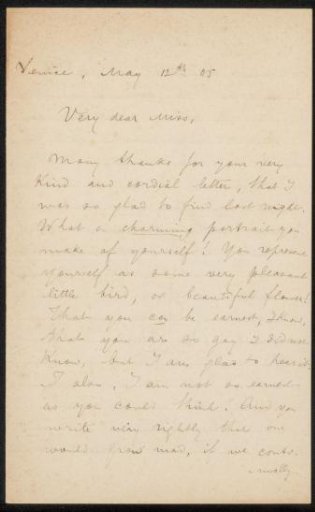 Venice, May 12th 05
Very dear Miss,
Many thanks for your very
kind and cordial letter, that I
was so glad to find last night.
What a charming portrait you
make of yourself! You represent
yourself as some very pleasant
little bird, or beautiful flower!
That you can be earnest, I know,
that you are so gay I did not
know, but I am glad to hear it
I also, I am not so earnest
as you could think. And you
write very rightly that one
would grow mad, if we conti-
nually